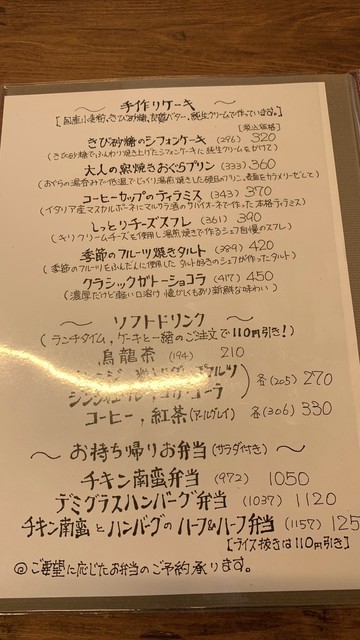 ～ 手作りケーキ ～
[国産小麦粉、きび砂糖、発酵バター、純生クリームで作っています。]
[税込価格]
きび砂糖のシフォンケーキ (296) 320
(きび砂糖でふんわり焼き上げたシフォンケーキに純生クリームをかけて)
大人の窯焼きおぐらプリン (333) 360
コーヒーカップのティラミス (343) 370
(イタリア産マスカルポーネにマルサラ酒のサバイヨーネで作った本格ティラミス)
しっとりチーズスフレ (361) 390
(キリクリームチーズを使用し湯煎焼きで作るシェフ自慢のスフレ)
季節のフルーツ焼きタルト (389) 420
(季節のフルーツをふんだんに使用した タルト好きのシェフが作ったタルト)
クラシックガトーショコラ (417) 450
(濃厚だけど軽い口溶け 懐かしくもあり新鮮な味わい)
～ ソフトドリンク ～
(ランチタイム、ケーキと一緒のご注文で110円引き!)
烏龍茶 (194) 210
各(205) 270
コーヒー、紅茶(アールグレイ) 各(306) 330
～ お持ち帰りお弁当 (サラダ付き) ～
チキン南蛮弁当 (972) 1050
デミグラスハンバーグ弁当 (1037) 1120
チキン南蛮とハンバーグのハーフ&ハーフ弁当 (1157) 125
[ライス抜きは110円引き]
◎ご要望に応じたお弁当のご予約承ります。